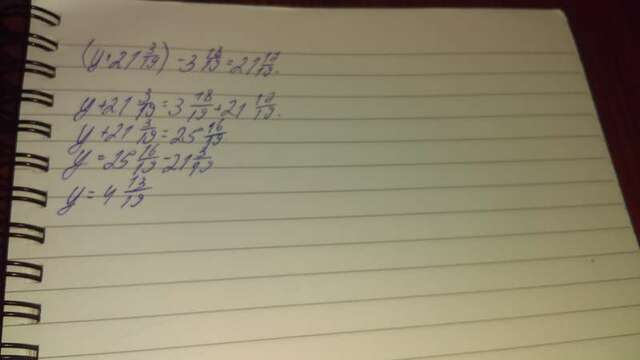 (y+21 3/19) - 3 18/19 = 21 17/19.
y+21 3/19 = 3 18/19 + 21 17/19.
y+21 3/19 = 25 16/19
y = 25 16/19 - 21 3/19
y = 4 13/19